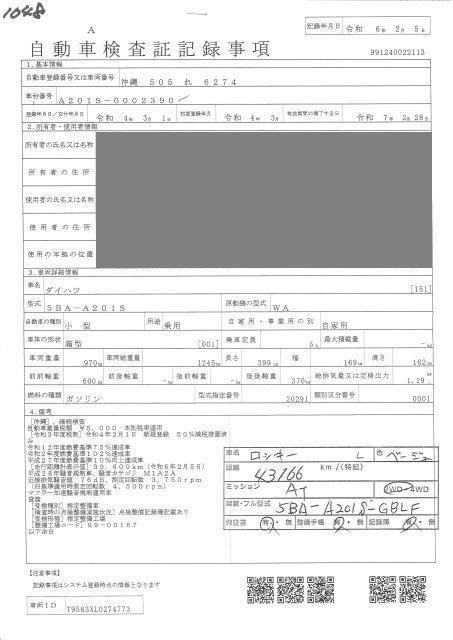 1048
A
自動車検査証記録事項
記録年月日 令和 6年 2月 5日
991240022113
1.基本情報
自動車登録番号又は車両番号 沖縄 505 れ 6274
車台番号 A201S-0002390
登録年月日/交付年月日 令和 4年 3月 1日 初度登録年月 令和 4年 3月 有効期間の満了する日 令和 7年 2月 28日
2.所有者・使用者情報
所有者の氏名又は名称
所有者の住所
使用者の氏名又は名称
使用者の住所
使用の本拠の位置
3.車両詳細情報
車名 ダイハツ [151]
型式 5BA-A201S 原動機の型式 WA
自動車の種別 小型 用途 乗用 自家用・事業用の別 自家用
車体の形状 箱型 [001] 乗車定員 5人 最大積載量 -kg
車両重量 970kg 車両総重量 1245kg 長さ 399cm 幅 169cm 高さ 162cm
前前軸重 600kg 前後軸重 -kg 後前軸重 -kg 後後軸重 370kg 総排気量又は定格出力 1.19L
燃料の種類 ガソリン 型式指定番号 20291 類別区分番号 0001
4.備考
[沖縄], 継続検査
自動車重量税額 ¥5,000 本則税率適用
[令和3年度税制]令和4年3月1日 新規登録 50%減税措置済
み
令和12年度燃費基準75%達成車
令和2年度燃費基準102%達成車
平成27年度燃費基準10%向上達成車
[走行距離計表示値]39,600km(令和6年2月5日)
平成28年騒音規制車、騒音カテゴリ M1A2A
近接排気騒音値 76dB、測定回転数 3,750rpm
(旧基準適用時測定回転数 4,500rpm)
マフラー加速騒音規制適用車
検査時
[受検種別]指定整備車
[検査時の点検整備実施状況]点検整備記録簿記載あり
[受検形態]指定整備工場
[整備工場コード]99-00167
以下余白
車名 ロッキー L 色 ベージュ
距離 43166 km/(特記)
ミッション AT 2WD・4WD
認装・フル型式 5BA-A201S-GBLF
保証書 有・無 整備手帳 有・無 記録簿 有・無
【注意事項】
記録事項はシステム登録時点の情報となります
車両ID T9563XL0274773